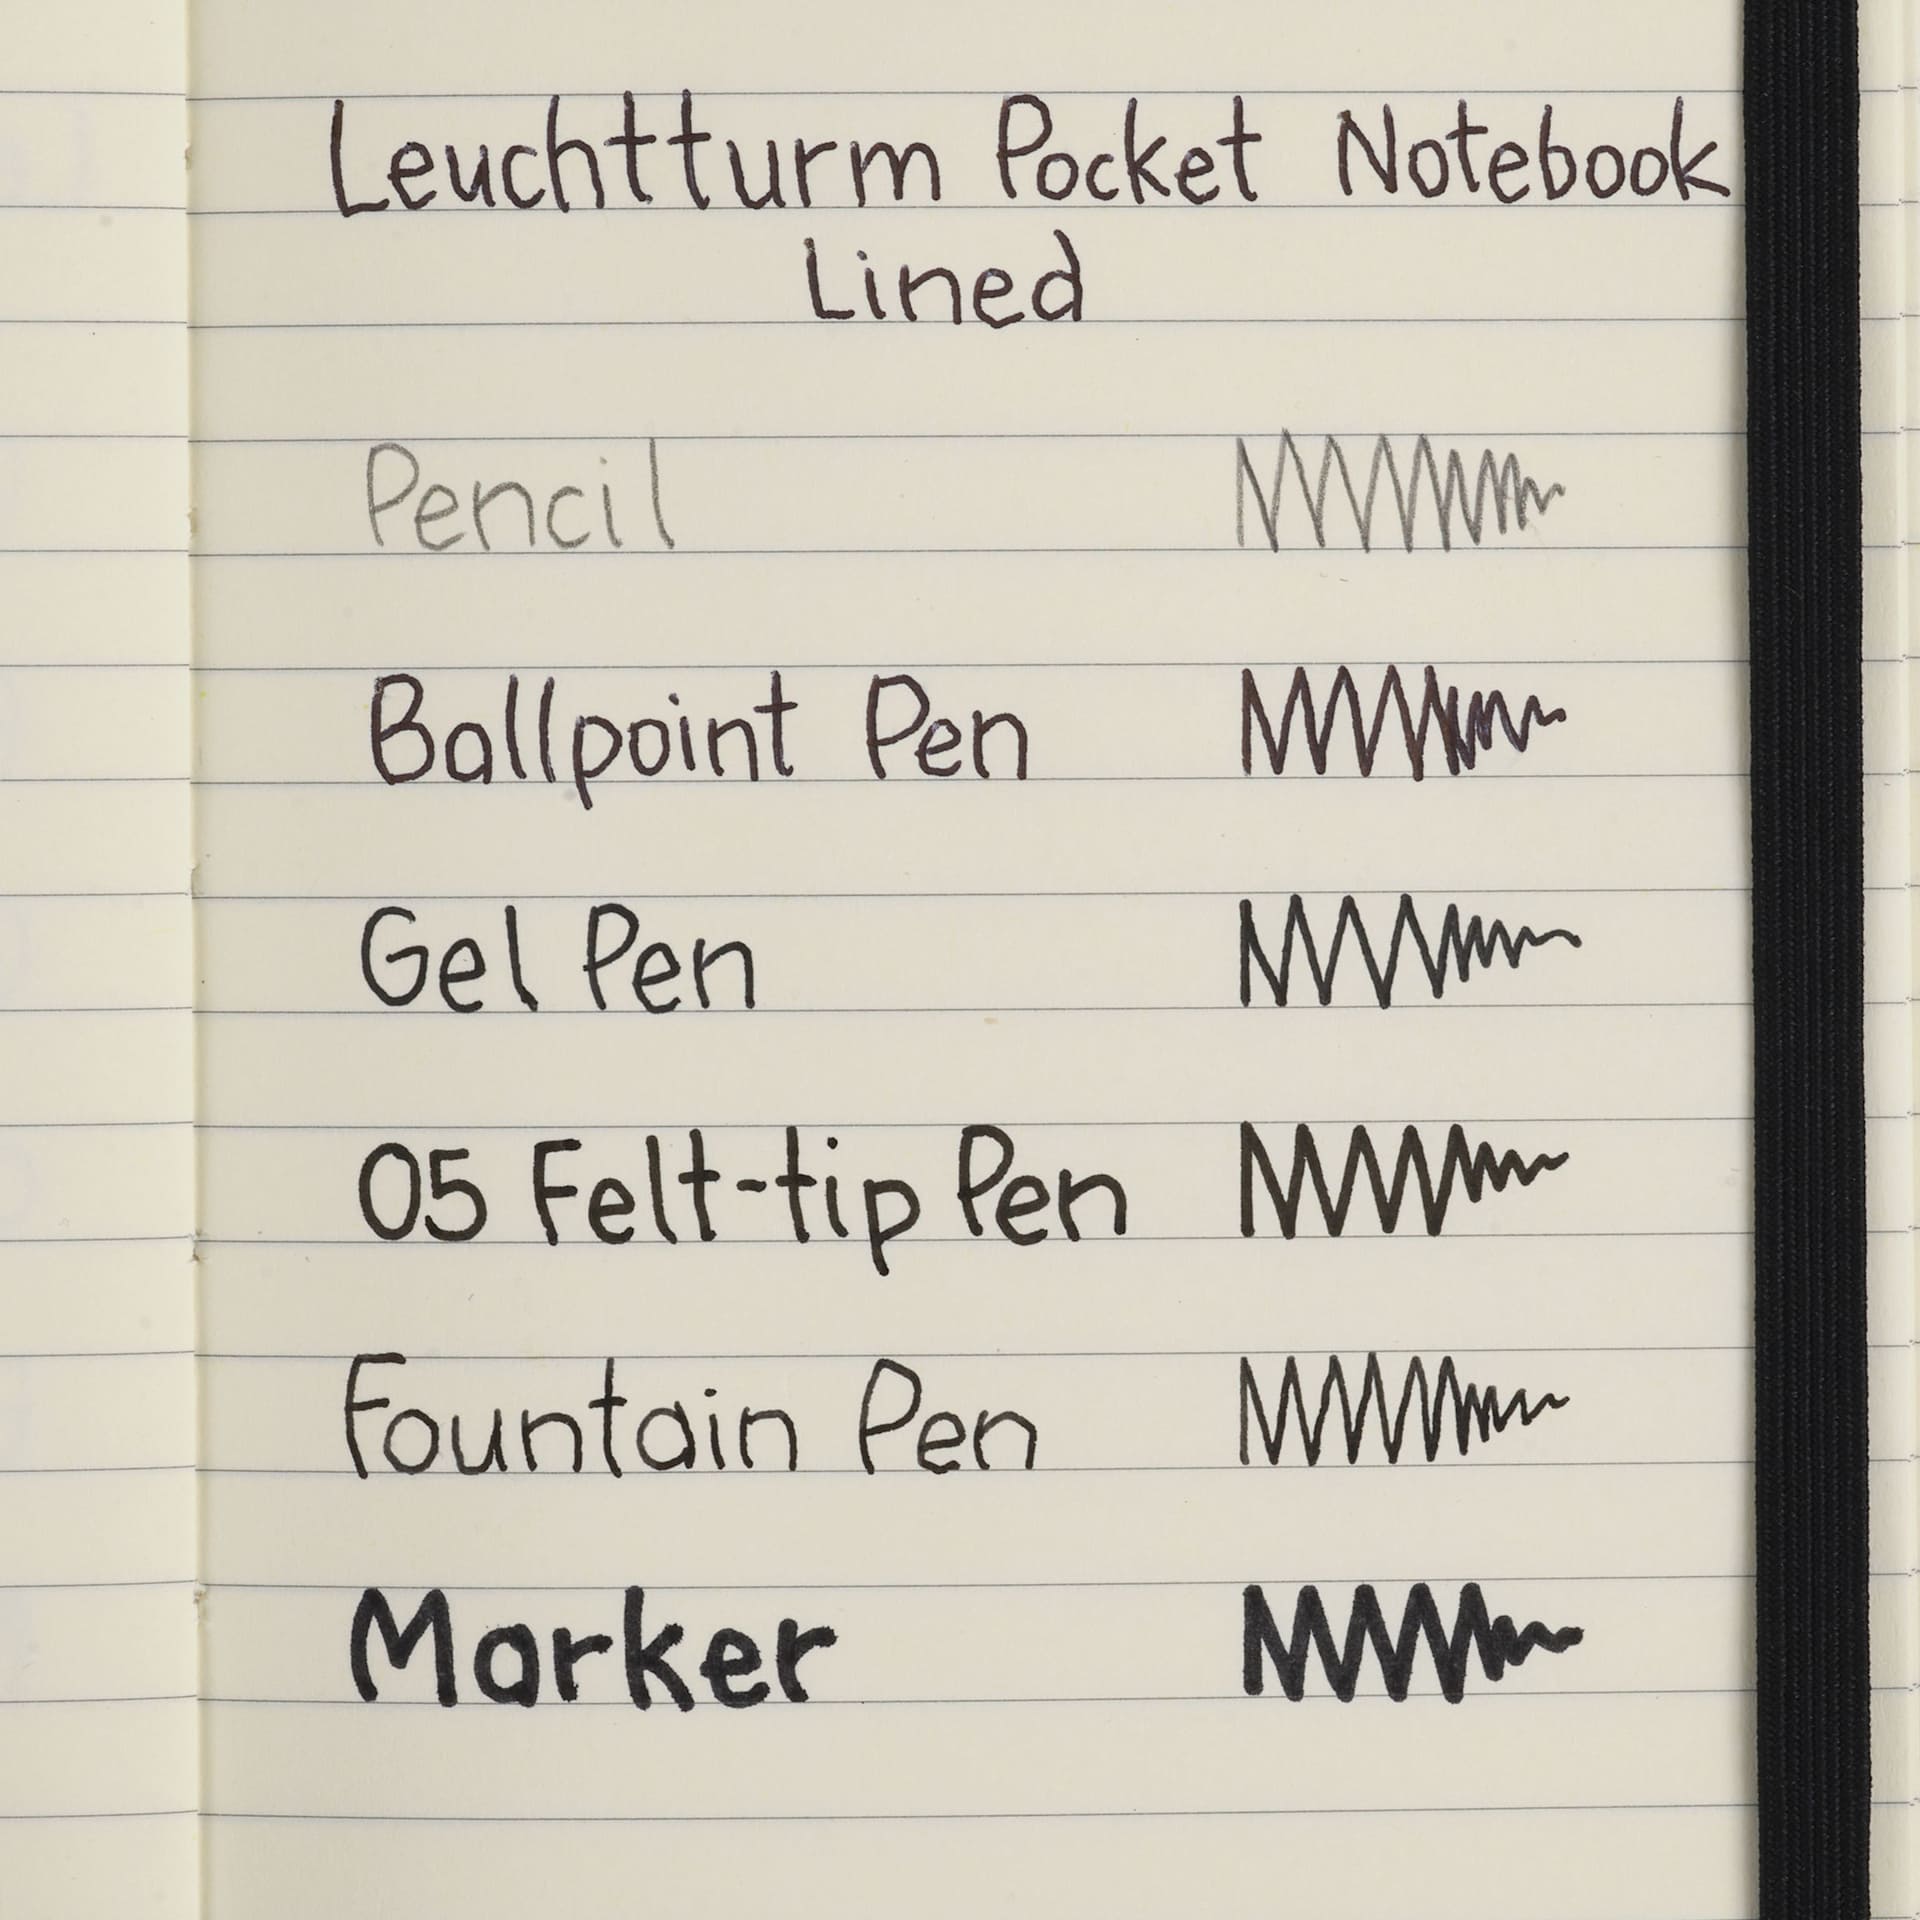 Leuchtturm Pocket Notebook
Lined
Pencil
Ballpoint Pen
Gel Pen
05 Felt-tip Pen
Fountain Pen
Marker